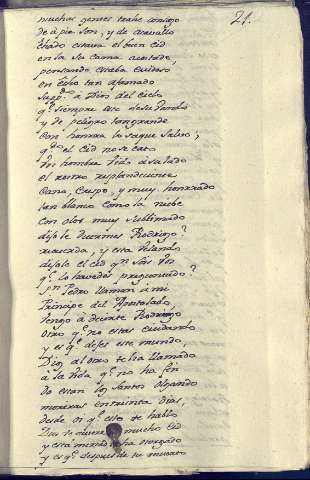 21.
muchas gentes trahe consigo
de à pie son, y de acavallo
Echado estava el buen Cid
en la su cama acostado,
pensando estaba cuidoso
en fecho tan afamado
Supp.ca à Dios del cielo
q.e siempre este de su vando
y de peligro tan grande
con honrra lo saque salvo;
q.do el Cid no se cato
un hombre vido à su lado
el rostro resplandeciente
Cano, Crespo, y muy honrrado
tan blanco como la nieve
con olor muy sublimado
dijole Duermes Rodrigo?
recuerda, y esta velando
dijole el Cid q.n sois vos
q.e lo havedes preguntado?
Sn Pedro llaman à mi
Principe del Apostolado
vengo à decirte Rodrigo
otro q.e no estas cuidando
y es q.e dejes este mundo,
Dios al otro te ha llamado
à la vida q.e no ha fin
do estan los santos olgando
moriras en treinta dias,
desde oi q.e esto te hablo
Dios te quiere mucho Cid
y esta merced te ha otorgado
y es q.e despues de tu muerte